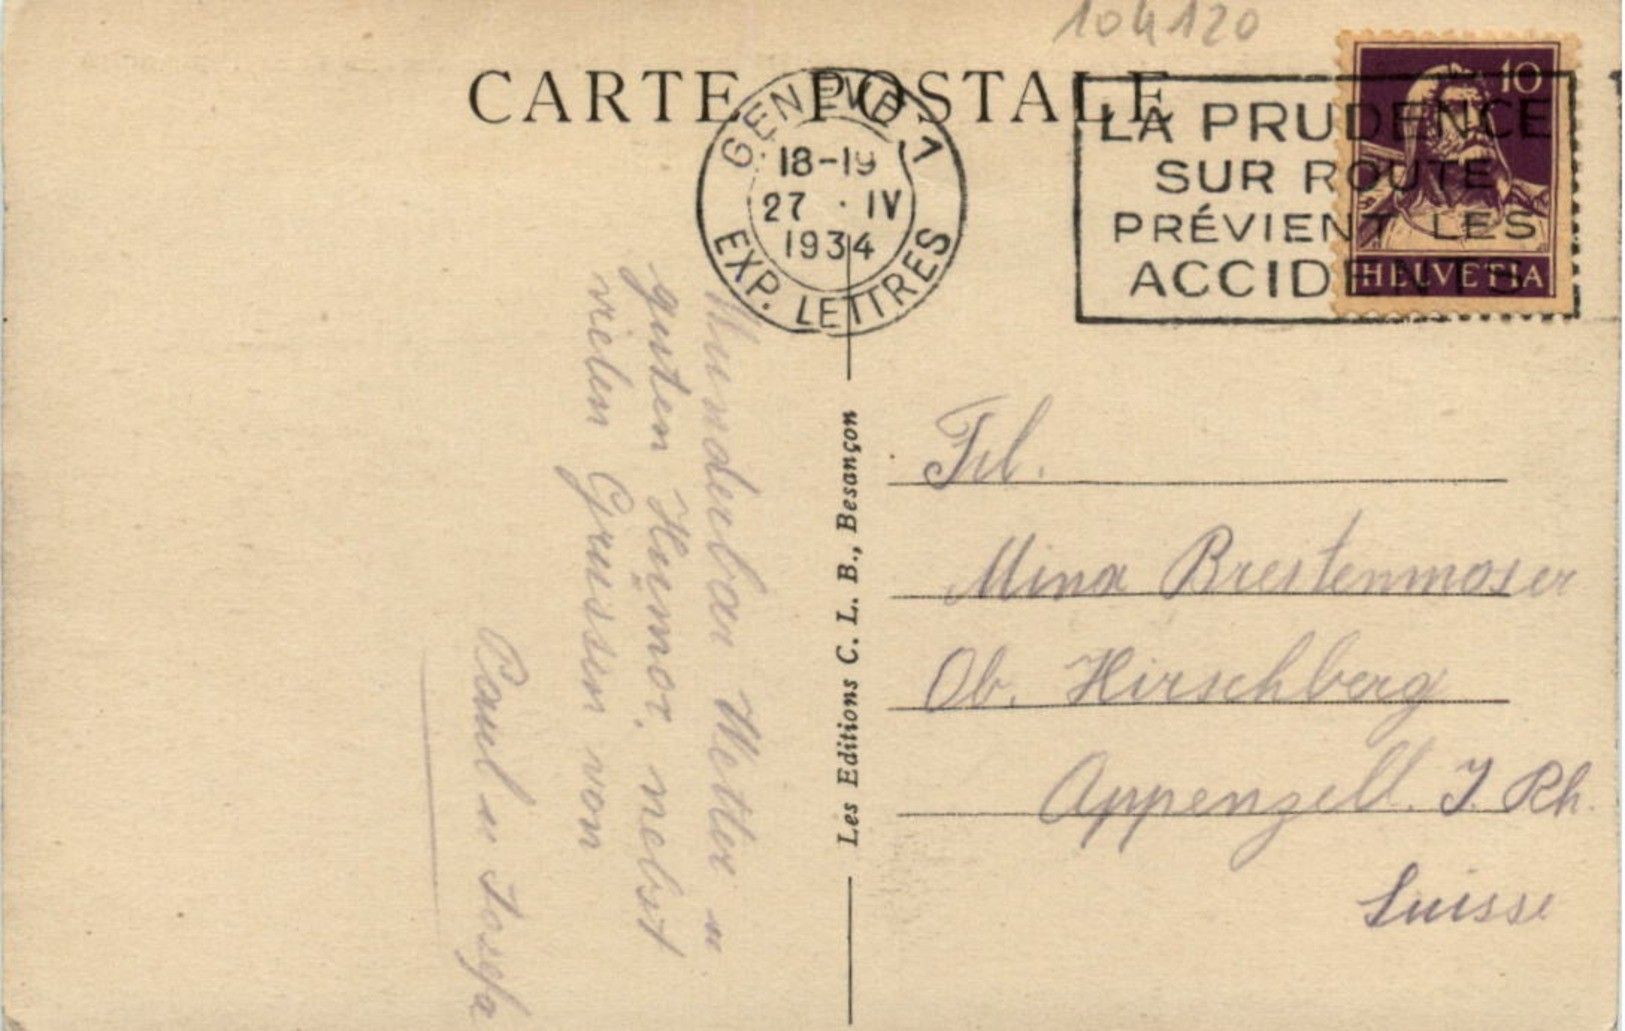 104120
CARTE POSTALE
GENÈVE 1
18-19
27 · IV
1934
EXP. LETTRES
LA PRUDENCE
SUR ROUTE
PRÉVIENT LES
ACCIDENTS
10
HELVETIA
Wunderbar Wetter u.
guten Humor, nebst
vielen Grussen von
Paul u Josefa
Les Editions C. L. B., Besançon
Frl.
Mina Breitenmoser
Ob. Hirschberg
Appenzell. I. Rh.
Suisse